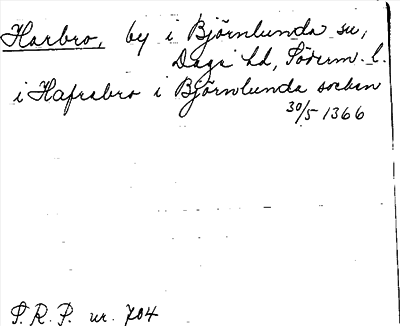 Harbro, by i Björnlunda sn,
Daga hd, Söderm. l.
i Hafrabro i Björnlunda socken
30/5 1366
P.R.P. nr. 704